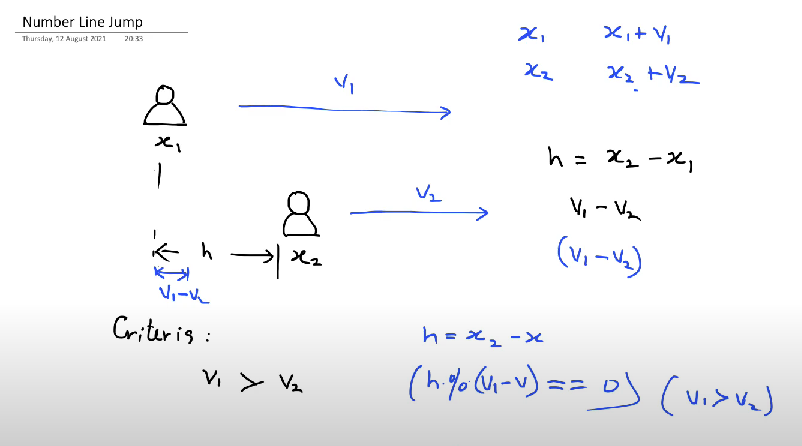 Number Line Jump
Thursday, 12 August 2021 20:33
x₁ x₁+v₁
x₂ x₂+v₂
v₁
x₁
h = x₂ - x₁
v₂
v₁ - v₂
(v₁ - v₂)
h
x₂
v₁-v₂
Criteria :
h = x₂ - x
v₁ > v₂
(h % (v₁-v) == 0) (v₁>v₂)